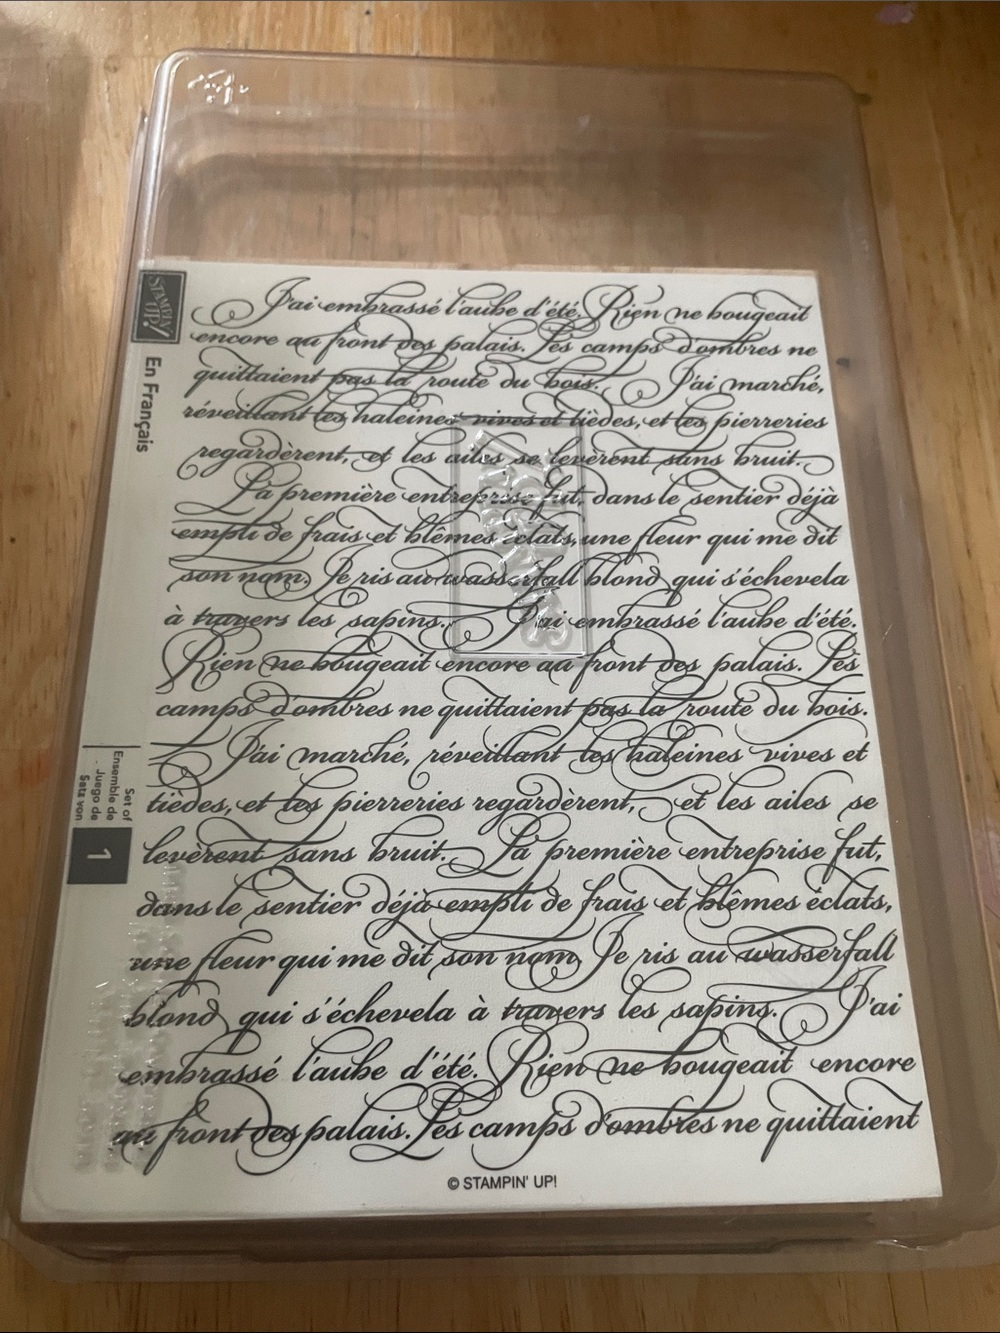 STAMPIN' UP!
En Français
Set of
Ensemble de
Juego de
Sets von
1
J'ai embrassé l'aube d'été. Rien ne bougeait
encore au front des palais. Les camps d'ombres ne
quittaient pas la route du bois. J'ai marché,
réveillant les haleines vives et tièdes, et les pierreries
regardèrent, et les ailes se levèrent sans bruit.
La première entreprise fut, dans le sentier déjà
empli de frais et blêmes éclats, une fleur qui me dit
son nom. Je ris au wasserfall blond qui s'échevela
à travers les sapins. J'ai embrassé l'aube d'été.
Rien ne bougeait encore au front des palais. Les
camps d'ombres ne quittaient pas la route du bois.
J'ai marché, réveillant les haleines vives et
tièdes, et les pierreries regardèrent, et les ailes se
levèrent sans bruit. La première entreprise fut,
dans le sentier déjà empli de frais et blêmes éclats,
une fleur qui me dit son nom. Je ris au wasserfall
blond qui s'échevela à travers les sapins. J'ai
embrassé l'aube d'été. Rien ne bougeait encore
au front des palais. Les camps d'ombres ne quittaient
© STAMPIN' UP!